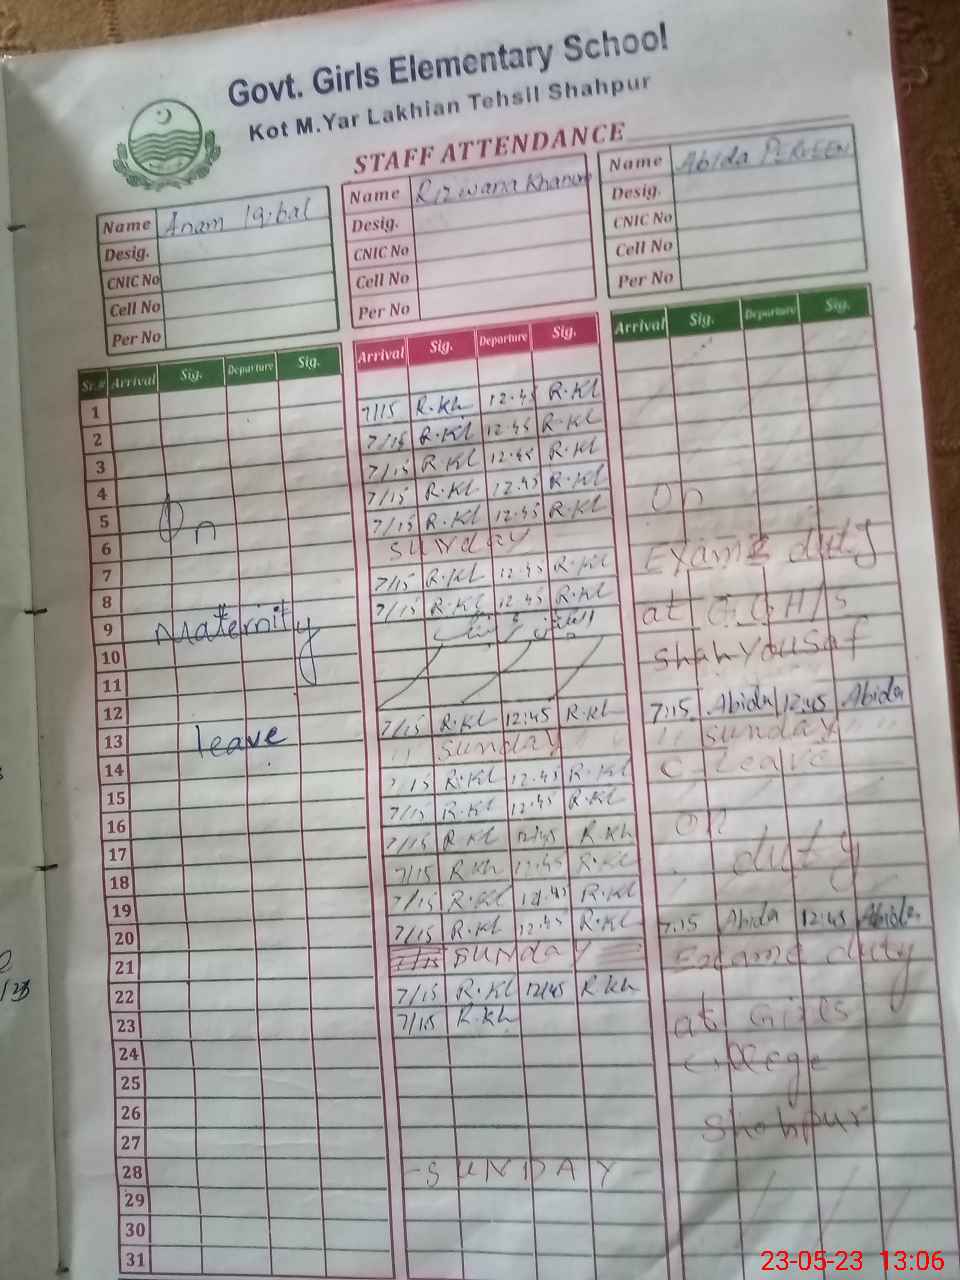 Govt. Girls Elementary School
Kot M.Yar Lakhian Tehsil Shahpur
STAFF ATTENDANCE
Name Anam Iqbal
Desig.
CNIC No
Cell No
Per No
Name Rizwana Khanum
Desig.
CNIC No
Cell No
Per No
Name Abida PERVEEN
Desig.
CNIC No
Cell No
Per No
Sr.# Arrival Sig. Departure Sig. Arrival Sig. Departure Sig. Arrival Sig. Departure Sig.
1 7/15 R.Kh 12.45 R.Kl
2 7/15 R.Kl 12.45 R.Kl
3 7/15 R.Kl 12.45 R.Kl
4 7/15 R.Kl 12.45 R.Kl
5 On 7/15 R.Kl 12.45 R.Kl On
6 sunday
7 7/15 R.Kl 12.45 R.Kl Exame duty
8 7/15 R.Kl 12.45 R.Kl
9 Maternity at G.G.H/s
10 shahyousaf
11
12 7/15 R.Kl 12:45 R.Kl 7:15 Abida 12:45 Abida
13 leave sunday sunday
14 7/15 R.Kl 12.45 R.Kl C leave
15 7/15 R.Kl 12.45 R.Kl
16 7/15 R.Kl 12.45 R.Kh on
17 7/15 R.Kh 12.45 R.Kl duty
18 7/15 R.Kl 12.45 R.Kl
19 7/15 R.Kl 12.45 R.Kl
20 7:15 Abida 12:45 Abida
21 sunday Exame duty
22 7/15 R.Kl 12/45 R.Kh
23 7/15 R.Kh at Girls
24 college
25
26
27 Shahpur
28 -SUNDAY-
29
30
31
23-05-23 13:06